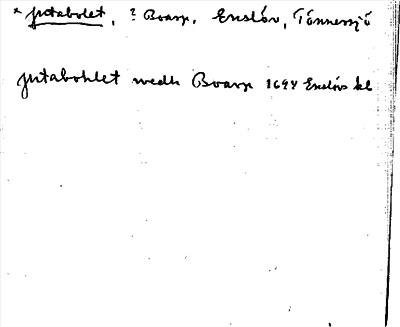 * Jutabolet, ? Boarp, Enslöv, Tönnersjö
Jutabohlet wedh Boarp 1694 Enslövs kl